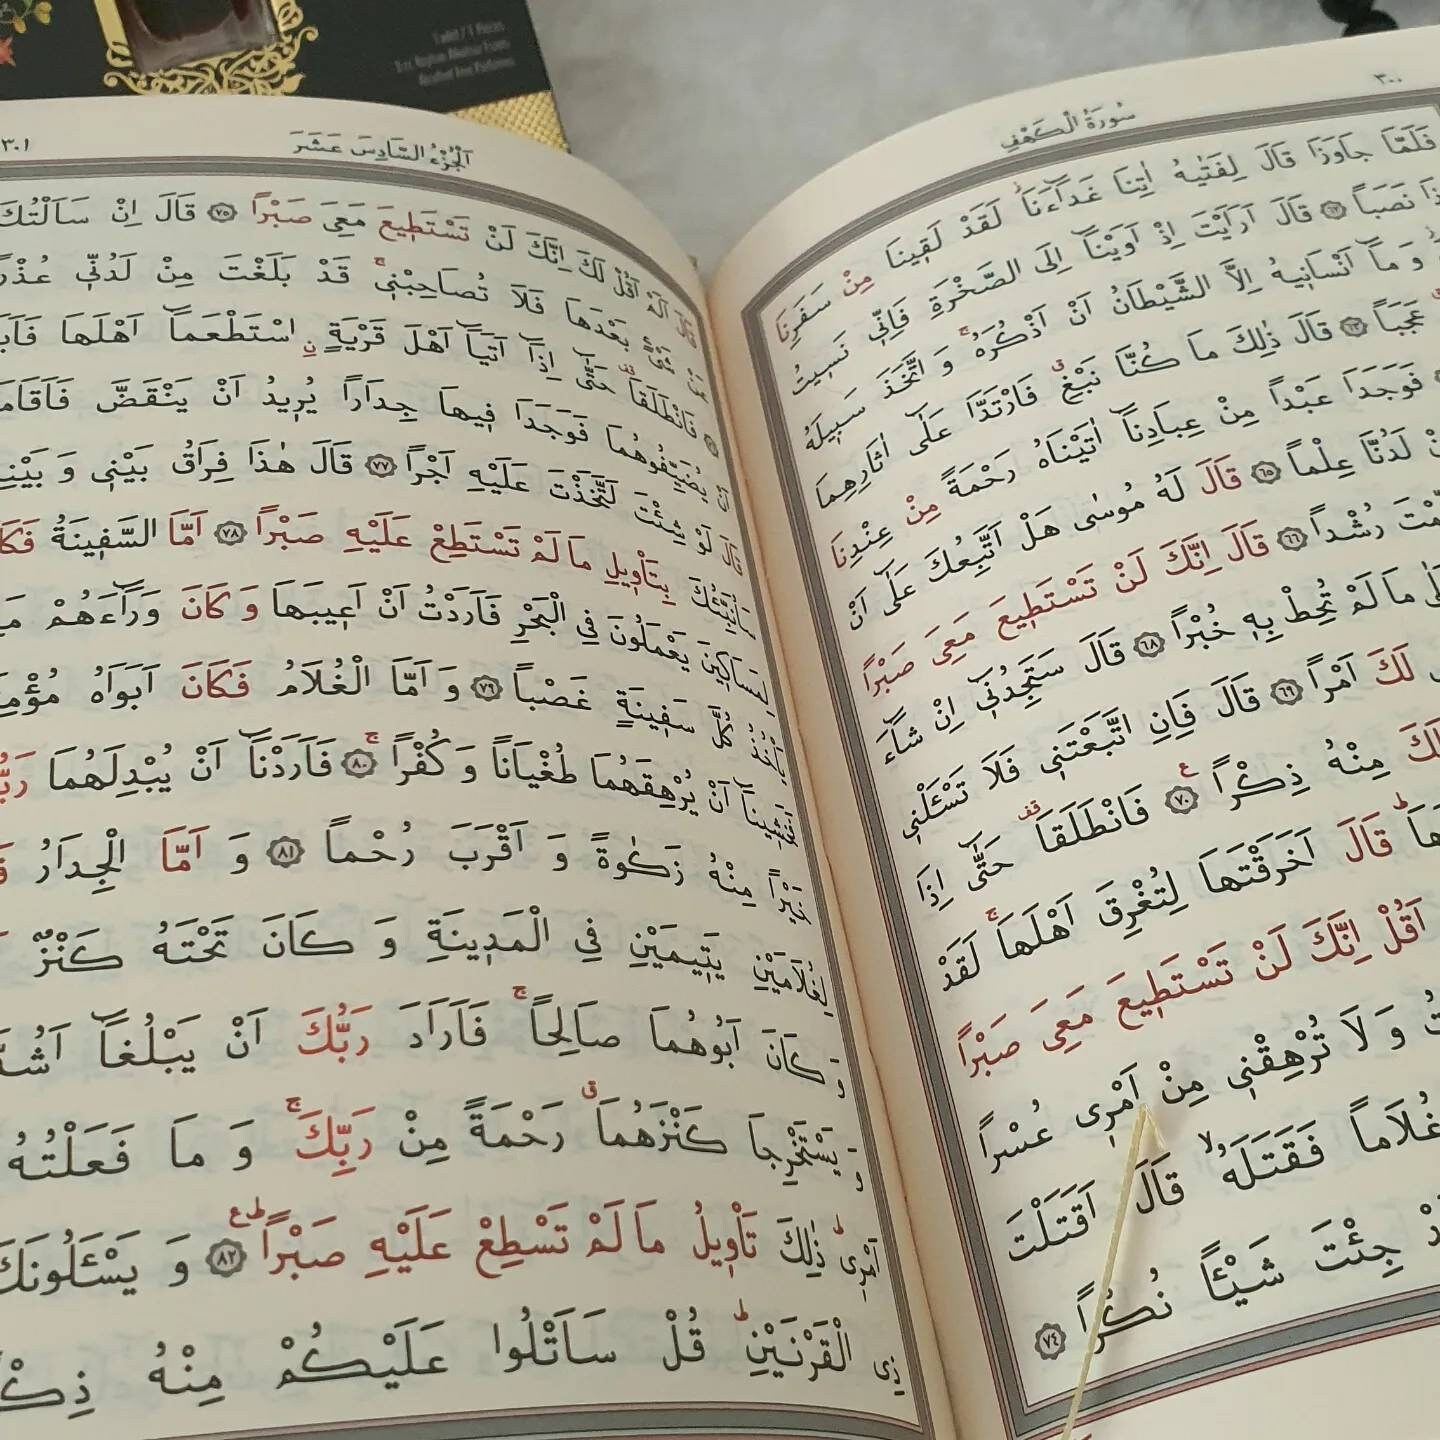 1 adet / 1 Pieces
سُورَةُ الْكَهْفِ
٣٠٠
فَلَمَّا جَاوَزَا قَالَ لِفَتٰيهُ اٰتِنَا غَدَٓاءَنَاۘ لَقَدْ لَقٖينَا مِنْ سَفَرِنَا
نَصَباً ٦٢ قَالَ اَرَاَيْتَ اِذْ اَوَيْنَٓا اِلَى الصَّخْرَةِ فَاِنّٖى نَسٖيتُ
وَمَٓا اَنْسَانٖيهُ اِلَّا الشَّيْطَانُ اَنْ اَذْكُرَهُۚ وَاتَّخَذَ سَبٖيلَهُ
عَجَباً ٦٣ قَالَ ذٰلِكَ مَا كُنَّا نَبْغِۗ فَارْتَدَّا عَلٰٓى اٰثَارِهِمَا
فَوَجَدَا عَبْداً مِنْ عِبَادِنَٓا اٰتَيْنَاهُ رَحْمَةً مِنْ عِنْدِنَا
لَدُنَّا عِلْماً ٦٥ قَالَ لَهُ مُوسٰى هَلْ اَتَّبِعُكَ عَلٰٓى اَنْ
رُشْداً ٦٦ قَالَ اِنَّكَ لَنْ تَسْتَطٖيعَ مَعِىَ صَبْراً
مَالَمْ تُحِطْ بِهٖ خُبْراً ٦٨ قَالَ سَتَجِدُنٖٓى اِنْ شَٓاءَ
لَكَ اَمْراً ٦٩ قَالَ فَاِنِ اتَّبَعْتَنٖى فَلَا تَسْـَٔلْنٖى
مِنْهُ ذِكْراً ٧٠ فَانْطَلَقَا حَتّٰٓى اِذَا
قَالَ اَخَرَقْتَهَا لِتُغْرِقَ اَهْلَهَاۚ لَقَدْ
اَقُلْ اِنَّكَ لَنْ تَسْتَطٖيعَ مَعِىَ صَبْراً
وَلَا تُرْهِقْنٖى مِنْ اَمْرٖى عُسْراً
غُلَاماً فَقَتَلَهُۙ قَالَ اَقَتَلْتَ
جِئْتَ شَيْـٔاً نُكْراً ٧٤
اَلْجُزْءُ السَّادِسَ عَشَرَ
٣٠١
قَالَ اَلَمْ اَقُلْ لَكَ اِنَّكَ لَنْ تَسْتَطٖيعَ مَعِىَ صَبْراً ٧٥ قَالَ اِنْ سَاَلْتُكَ
عَنْ شَىْءٍ بَعْدَهَا فَلَا تُصَاحِبْنٖىۚ قَدْ بَلَغْتَ مِنْ لَدُنّٖى عُذْراً
فَانْطَلَقَا حَتّٰٓى اِذَٓا اَتَيَٓا اَهْلَ قَرْيَةٍ اسْتَطْعَمَٓا اَهْلَهَا
اَنْ يُضَيِّفُوهُمَا فَوَجَدَا فٖيهَا جِدَاراً يُرٖيدُ اَنْ يَنْقَضَّ فَاَقَامَهُ
قَالَ لَوْ شِئْتَ لَتَّخَذْتَ عَلَيْهِ اَجْراً ٧٧ قَالَ هٰذَا فِرَاقُ بَيْنٖى وَبَيْنِكَ
سَاُنَبِّئُكَ بِتَاْوٖيلِ مَالَمْ تَسْتَطِعْ عَلَيْهِ صَبْراً ٧٨ اَمَّا السَّفٖينَةُ
لِمَسَاكٖينَ يَعْمَلُونَ فِى الْبَحْرِ فَاَرَدْتُ اَنْ اَعٖيبَهَا وَكَانَ وَرَٓاءَهُمْ
يَاْخُذُ كُلَّ سَفٖينَةٍ غَصْباً ٧٩ وَاَمَّا الْغُلَامُ فَكَانَ اَبَوَاهُ
فَخَشٖينَٓا اَنْ يُرْهِقَهُمَا طُغْيَاناً وَكُفْراًۚ ٨٠ فَاَرَدْنَٓا اَنْ يُبْدِلَهُمَا
خَيْراً مِنْهُ زَكٰوةً وَاَقْرَبَ رُحْماً ٨١ وَاَمَّا الْجِدَارُ
لِغُلَامَيْنِ يَتٖيمَيْنِ فِى الْمَدٖينَةِ وَكَانَ تَحْتَهُ كَنْزٌ
وَكَانَ اَبُوهُمَا صَالِحاًۚ فَاَرَادَ رَبُّكَ اَنْ يَبْلُغَٓا
وَيَسْتَخْرِجَا كَنْزَهُمَاۗ رَحْمَةً مِنْ رَبِّكَۚ وَمَا فَعَلْتُهُ
اَمْرٖىۜ ذٰلِكَ تَاْوٖيلُ مَالَمْ تَسْطِعْ عَلَيْهِ صَبْراًۜ ٨٢ وَيَسْـَٔلُونَكَ
ذِى الْقَرْنَيْنِۜ قُلْ سَاَتْلُوا عَلَيْكُمْ مِنْهُ